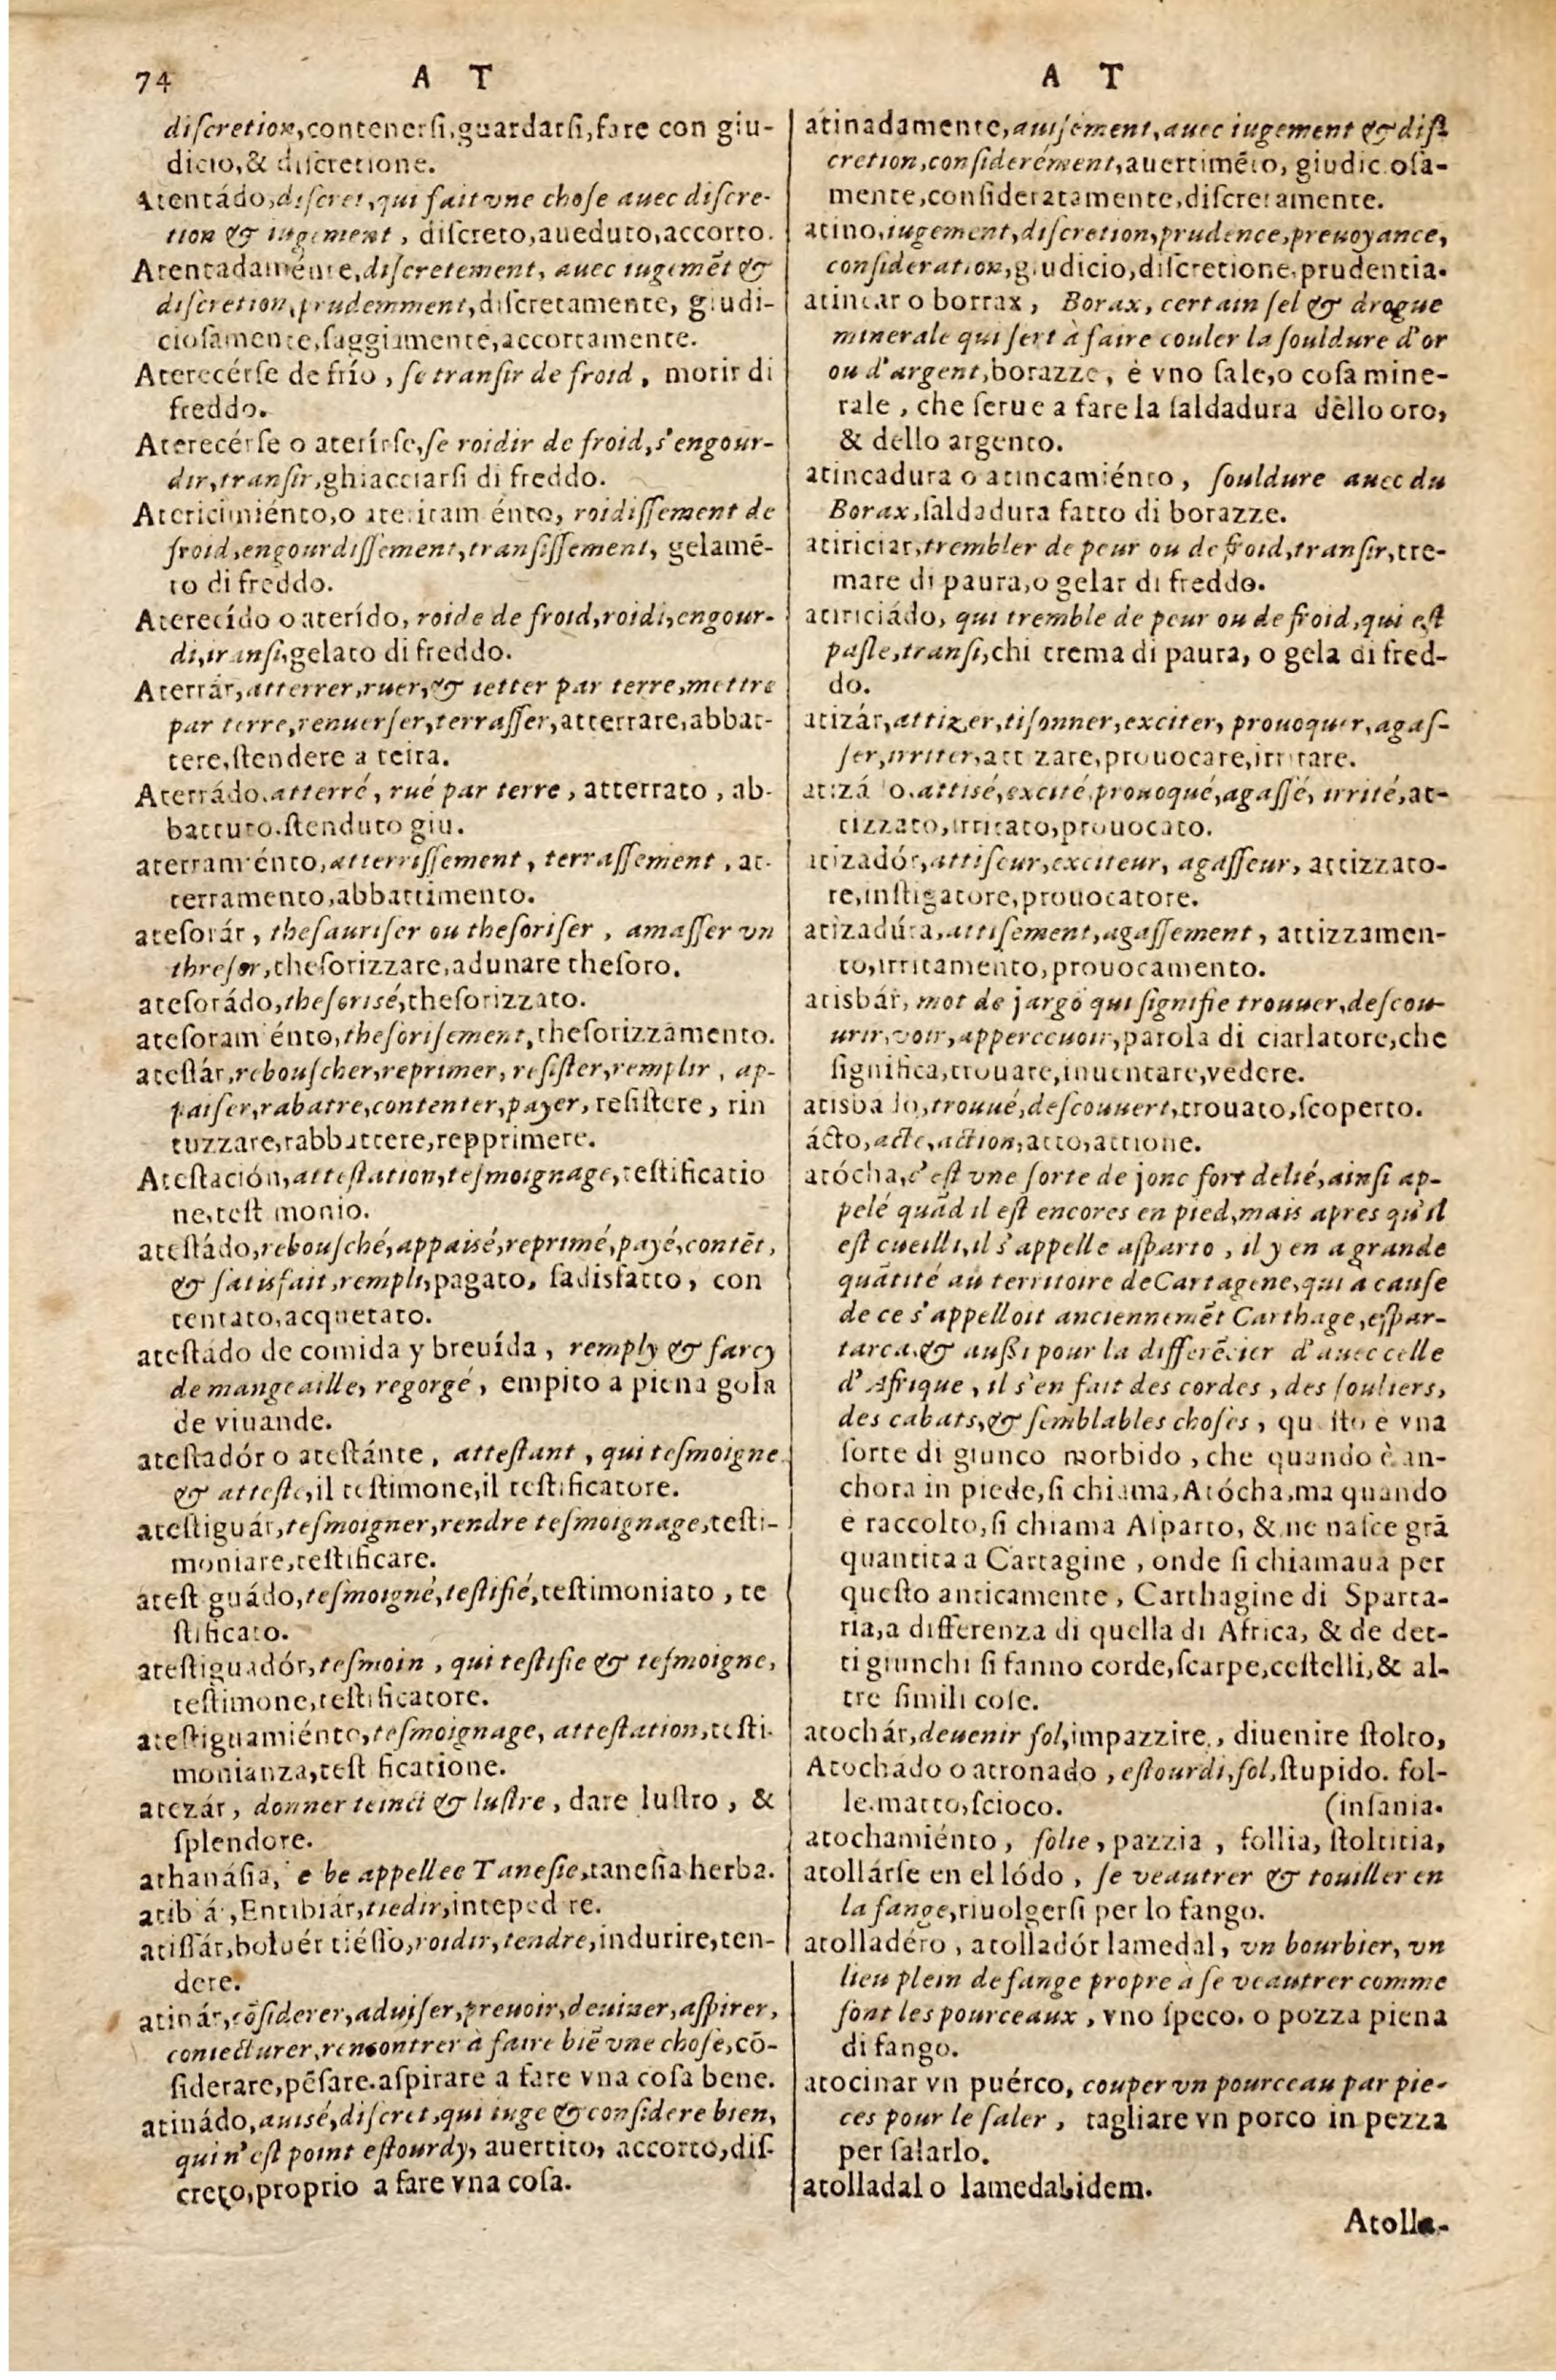 74 A T
discretion, contenersi, guardarsi, fare con giu-
dicio, & discretione.
Atentádo, discret, qui fait vne chose auec discre-
tion & iugement, discreto, aueduto, accorto.
Atentadaménte, discretement, auec iugemēt &
discretion, prudemment, discretamente, giudi-
ciosamente, saggiamente, accortamente.
Aterecérse de frío, se transir de froid, morir di
freddo.
Aterecérse o aterírse, se roidir de froid, s'engour-
dir, transir, ghiacciarsi di freddo.
Atericimiénto, o ateritamiénto, roidissement de
froid, engourdissement, transissement, gelamē-
to di freddo.
Aterecído o aterído, roide de froid, roidi, engour-
di, transi, gelato di freddo.
Aterrár, atterrer, ruer, & ietter par terre, mettre
par terre, renuerser, terrasser, atterrare, abbat-
tere, stendere a teira.
Aterrádo. atterré, rué par terre, atterrato, ab-
battuto. stenduto giu.
aterramiénto, atterrissement, terrassement, at-
terramento, abbattimento.
atesorár, thesauriser ou thesoriser, amasser vn
thresor, thesorizzare, adunare thesoro.
atesorádo, thesorisé, thesorizzato.
atesoramiénto, thesorisement, thesorizzamento.
atestár, rebouscher, reprimer, resister, remplir, ap-
paiser, rabatre, contenter, payer, resistere, rin
tuzzare, rabbattere, repprimere.
Atestación, attestation, tesmoignage, testificatio
ne, testimonio.
atestádo, rebousché, appaisé, reprimé, payé, contēt,
& satisfait, rempli, pagato, sadisfatto, con
tentato, acquetato.
atestádo de comida y breuída, remply & farcy
de mangeaille, regorgé, empito a piena gola
de viuande.
atestadór o atestánte, attestant, qui tesmoigne
& atteste, il testimone, il testificatore.
atestiguár, tesmoigner, rendre tesmoignage, testi-
moniare, testificare.
atestiguádo, tesmoigné, testifié, testimoniato, te
stificato.
atestiguadór, tesmoin, qui testifie & tesmoigne,
testimone, testificatore.
atestiguamiénto, tesmoignage, attestation, testi-
monianza, testificatione.
atezár, donner teinct & lustre, dare lustro, &
splendore.
athanásia, e be appellee Tanesie, tanesia herba.
atib á, Entibiár, tiedir, intepedre.
atissár, boluér tiésso, roidir, tendre, indurire, ten-
dere.
atinár, cōsiderer, aduiser, preuoir, deuiner, aspirer,
coniecturer, rencontrer à faire biē vne chose, cō-
siderare, pēsare. aspirare a fare vna cosa bene.
atinádo, auisé, discret, qui iuge & considere bien,
qui n'est point estourdy, auertito, accorto, dis-
creto, proprio a fare vna cosa.
A T
atinadamente, auisément, auec iugement & dis-
cretion, considerément, auertimēto, giudiciosa-
mente, consideratamente, discretamente.
atino, iugement, discretion, prudence, preuoyance,
consideration, giudicio, discretione, prudentia.
atincar o borrax, Borax, certain sel & drogue
minerale qui sert à faire couler la souldure d'or
ou d'argent, borazze, è vno sale, o cosa mine-
rale, che serue a fare la saldadura dello oro,
& dello argento.
atincadura o atincamiénto, souldure auec du
Borax, saldadura fatto di borazze.
atiriciar, trembler de peur ou de froid, transir, tre-
mare di paura, o gelar di freddo.
atiriciádo, qui tremble de peur ou de froid, qui est
pasle, transi, chi trema di paura, o gela di fred-
do.
atizár, attizer, tisonner, exciter, prouoquer, agas-
ser, irriter, attizzare, prouocare, irritare.
atizá o. attisé, excité, prouoqué, agassé, irrité, at-
tizzato, irritato, prouocato.
atizadór, attiseur, exciteur, agasseur, attizzato-
re, instigatore, prouocatore.
atizadúra, attisement, agassement, attizzamen-
to, irritamento, prouocamento.
atisbár, mot de jargō qui signifie trouuer, descou-
urir, voir, apperceuoir, parola di ciarlatore, che
significa, trouare, inuentare, vedere.
atisbado, trouué, descouuert, trouato, scoperto.
ácto, acte, action, atto, attione.
atócha, c'est vne sorte de jonc fort delié, ainsi ap-
pelé quād il est encores en pied, mais apres qu'il
est cueilli, il s'appelle asparto, il y en a grande
quātité au territoire de Cartagene, qui à cause
de ce s'appelloit anciennemēt Carthage, espar-
tarca, & aussi pour la differēcier d'auec celle
d'Afrique, il s'en fait des cordes, des souliers,
des cabats, & semblables choses, questo è vna
sorte di giunco morbido, che quando è an-
chora in piede, si chiama, Atócha, ma quando
e raccolto, si chiama Asparto, & ne nasce grā
quantita a Cartagine, onde si chiamaua per
questo anticamente, Carthagine di Sparta-
ria, a differenza di quella di Africa, & de det-
ti giunchi si fanno corde, scarpe, cestelli, & al-
tre simili cose.
atochár, deuenir fol, impazzire, diuenire stolto,
Atochádo o atronado, estourdi, fol, stupido. fol-
le. matto, scioco. (insania.
atochamiénto, folie, pazzia, follia, stoltitia,
atollárse en el lódo, se veautrer & touiller en
la fange, riuolgersi per lo fango.
atolladéro, atolladór lamedal, vn bourbier, vn
lieu plein de fange propre à se veautrer comme
font les pourceaux, vno speco. o pozza piena
di fango.
atocinar vn puérco, couper vn pourceau par pie-
ces pour le saler, tagliare vn porco in pezza
per salarlo.
atolladal o lamedal, idem.
Atolla-